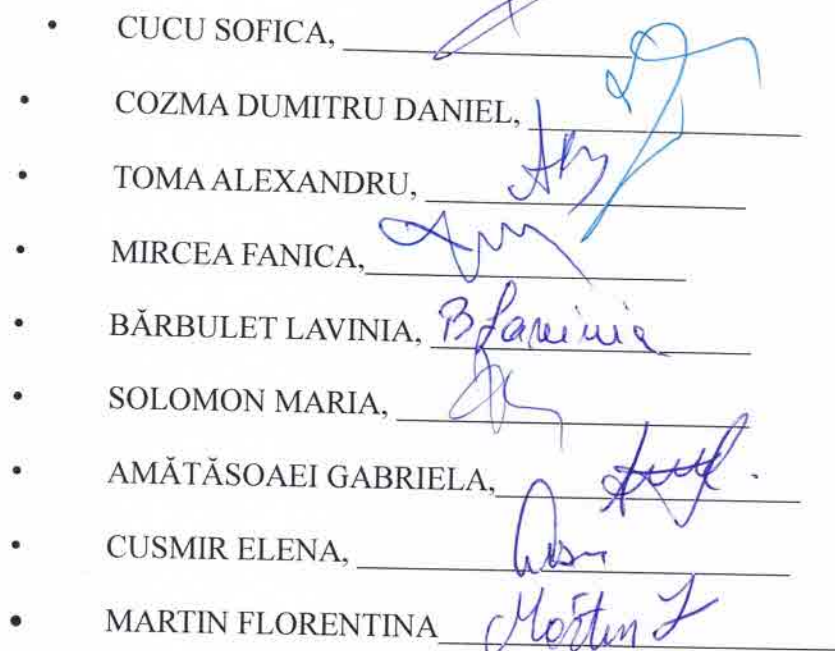 • CUCU SOFICA,
• COZMA DUMITRU DANIEL,
• TOMA ALEXANDRU,
• MIRCEA FANICA,
• BĂRBULET LAVINIA, B Lavinia
• SOLOMON MARIA,
• AMĂTĂSOAEI GABRIELA,
• CUSMIR ELENA,
• MARTIN FLORENTINA